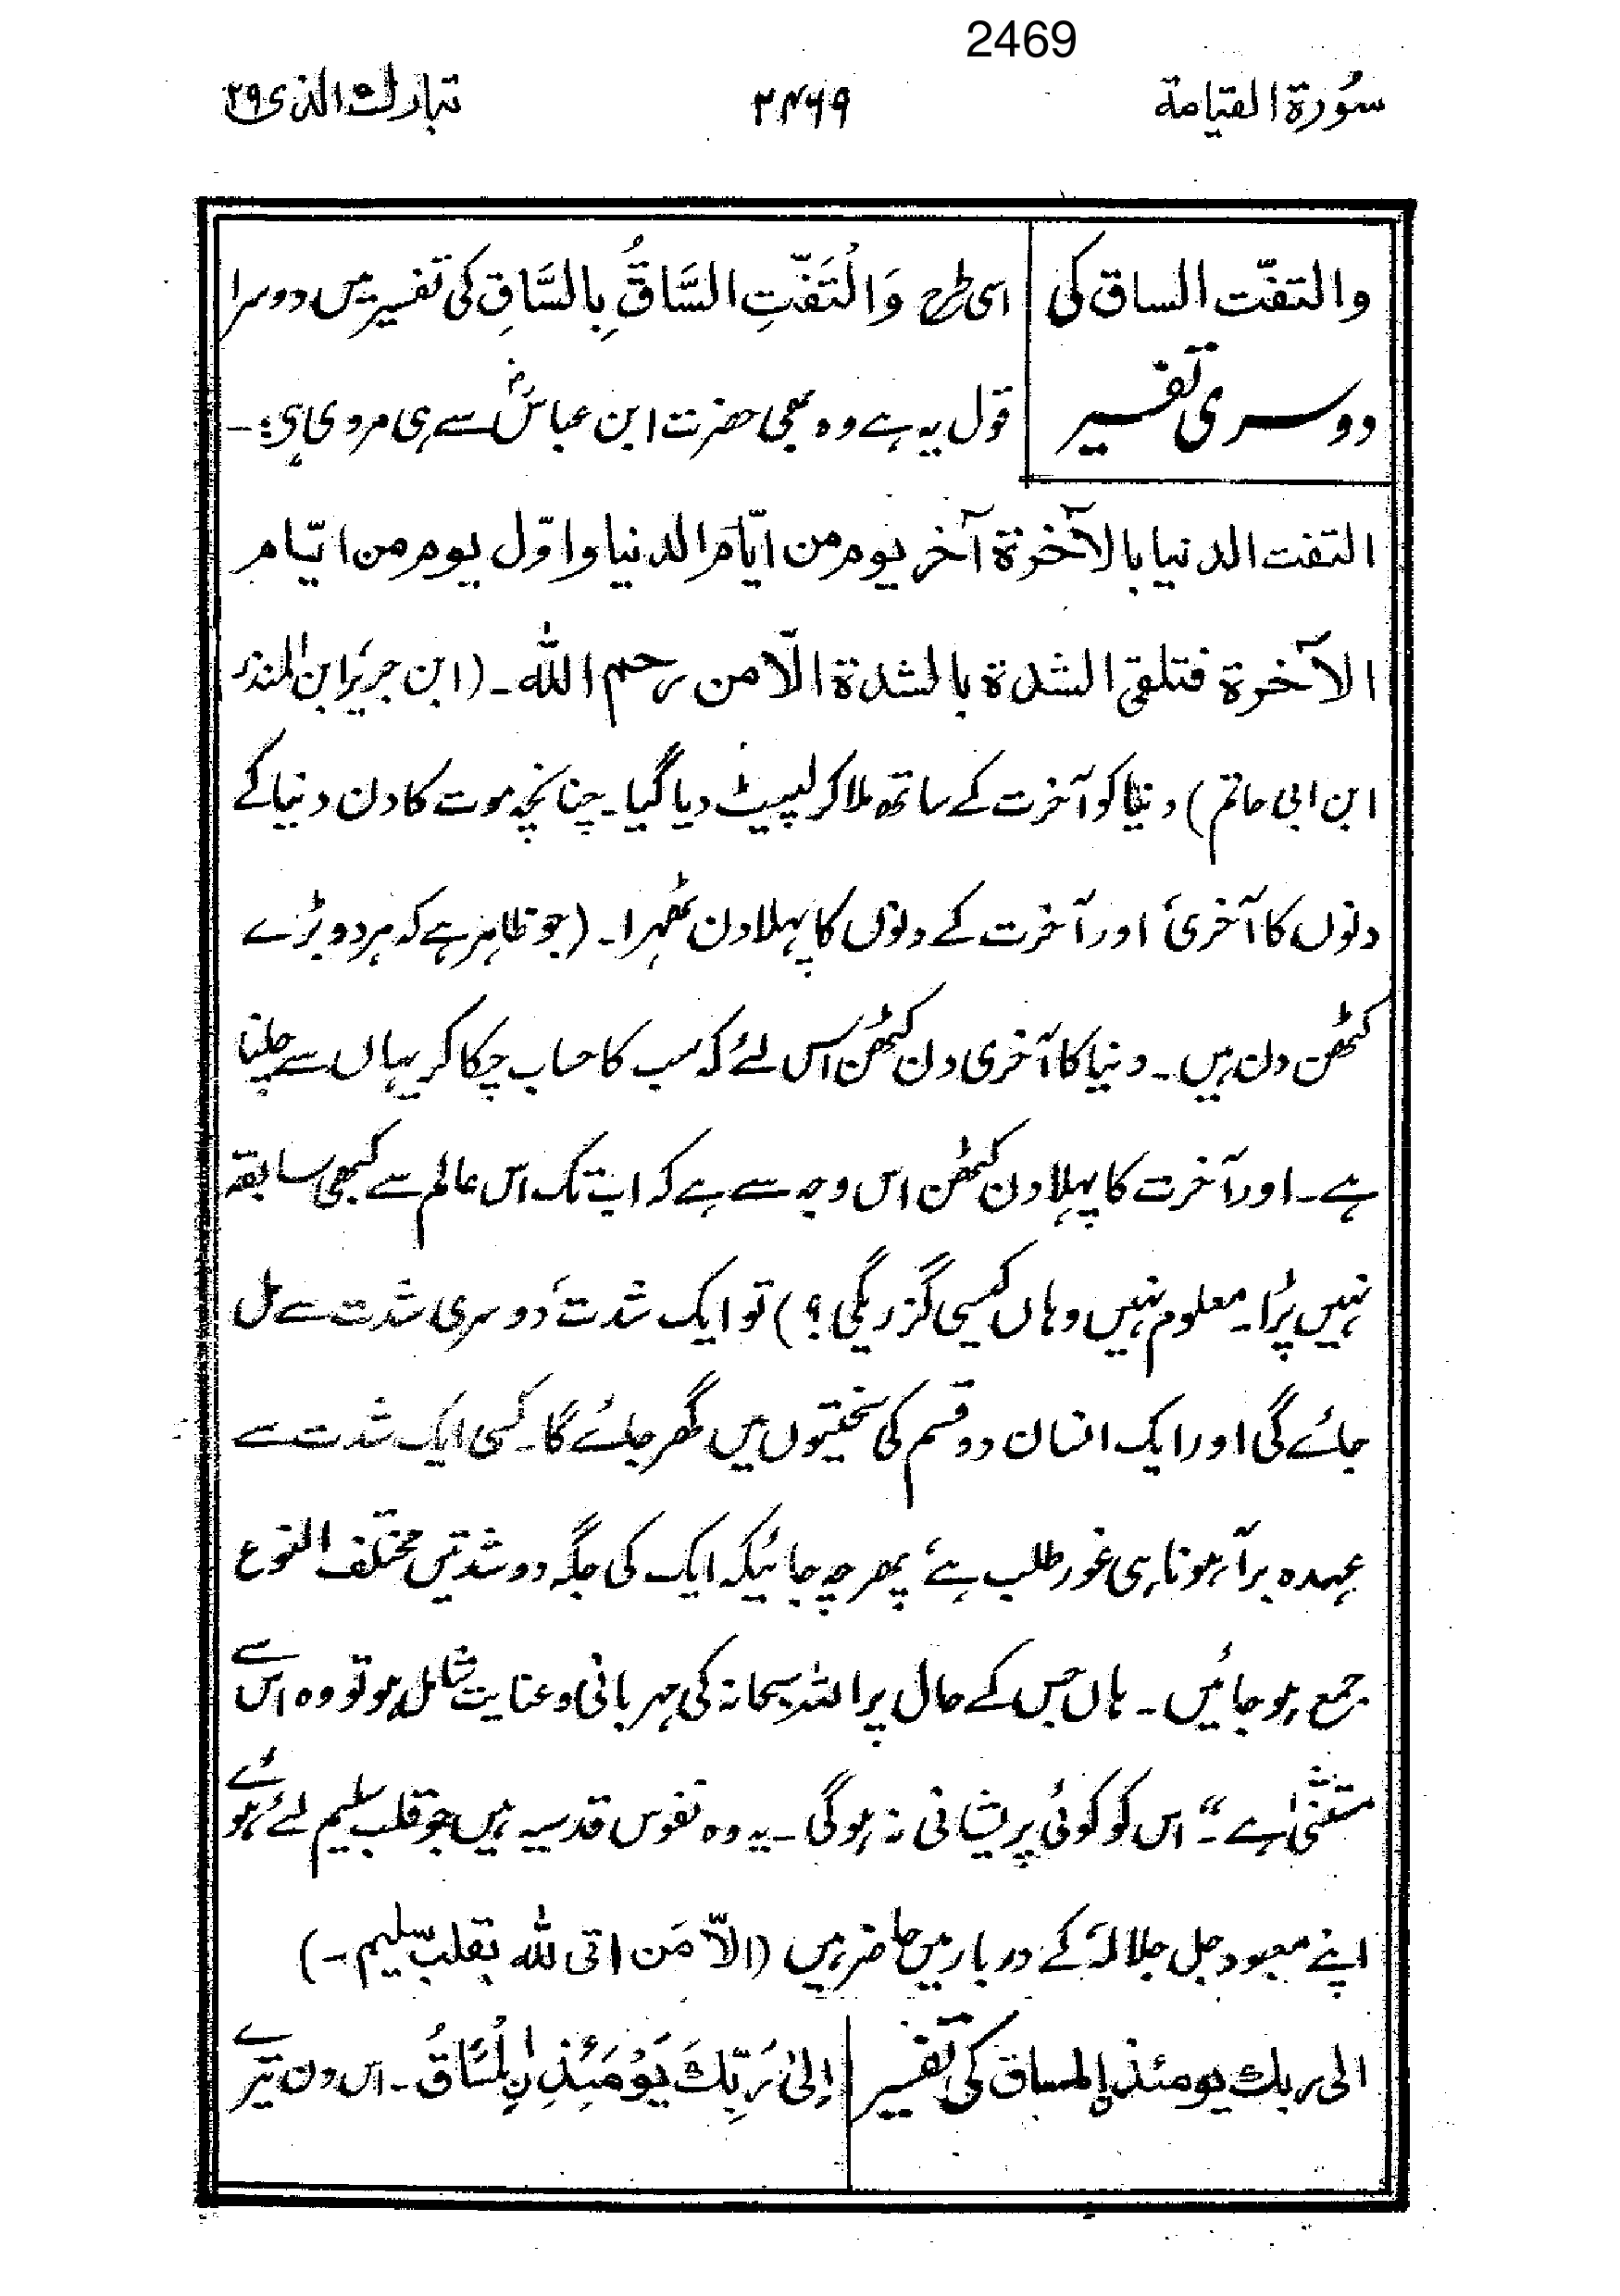 2469
سُورۃ القیامۃ ۲۴۶۹ تبارك الذی ۲۹
والتفّت الساق کی
دوسری تفسیر
اسی طرح وَالْتَفَّتِ السَّاقُ بِالسَّاقِ کی تفسیر میں دوسرا
قول یہ ہے وہ بھی حضرت ابن عباسؓ سے ہی مروی ہے:-
التفت الدنیا بالآخرۃ آخر یوم من ایّام الدنیا واوّل یوم من ایّام
الآخرۃ فتلقی الشدۃ بالشدۃ الّا من رحم اللہ ۔ (ابن جریر، ابن المنذر
ابن ابی حاتم) دنیا کو آخرت کے ساتھ ملا کر لپیٹ دیا گیا۔ چنانچہ موت کا دن دنیا کے
دنوں کا آخری، اور آخرت کے دنوں کا پہلا دن ٹھہرا۔ (جو ظاہر ہے کہ ہر دو بڑے
کٹھن دن ہیں۔ دنیا کا آخری دن کٹھن اس لئے کہ سب کا حساب چکا کر یہاں سے چلنا
ہے۔ اور آخرت کا پہلا دن کٹھن اس وجہ سے ہے کہ اب تک اس عالم سے کبھی سابقہ
نہیں پڑا۔ معلوم نہیں وہاں کیسی گزریگی؟) تو ایک شدت، دوسری شدت سے مل
جائے گی اور ایک انسان دو قسم کی سختیوں میں گھر جائے گا۔ کسی ایک شدت سے
عہدہ برآ ہونا ہی غور طلب ہے، پھر چہ جائیکہ ایک کی جگہ دو شدتیں مختلف النوع
جمع ہو جائیں۔ ہاں جس کے حال پر اللہ سبحانہ کی مہربانی و عنایت شامل ہو تو وہ اس سے
مستثنیٰ ہے۔“ اس کو کوئی پریشانی نہ ہوگی۔ یہ وہ نفوس قدسیہ ہیں جو قلب سلیم لئے ہوئے
اپنے معبود جل جلالہٗ کے دربار میں حاضر ہیں (الاّ مَن اتی للہ بقلب سّلیم ۔)
الی ربك یومئذ المساق کی تفسیر
اِلیٰ رَبِّكَ یَوْمَئِذِ نِ الْمَسَاقُ ۔ اس دن تیرے